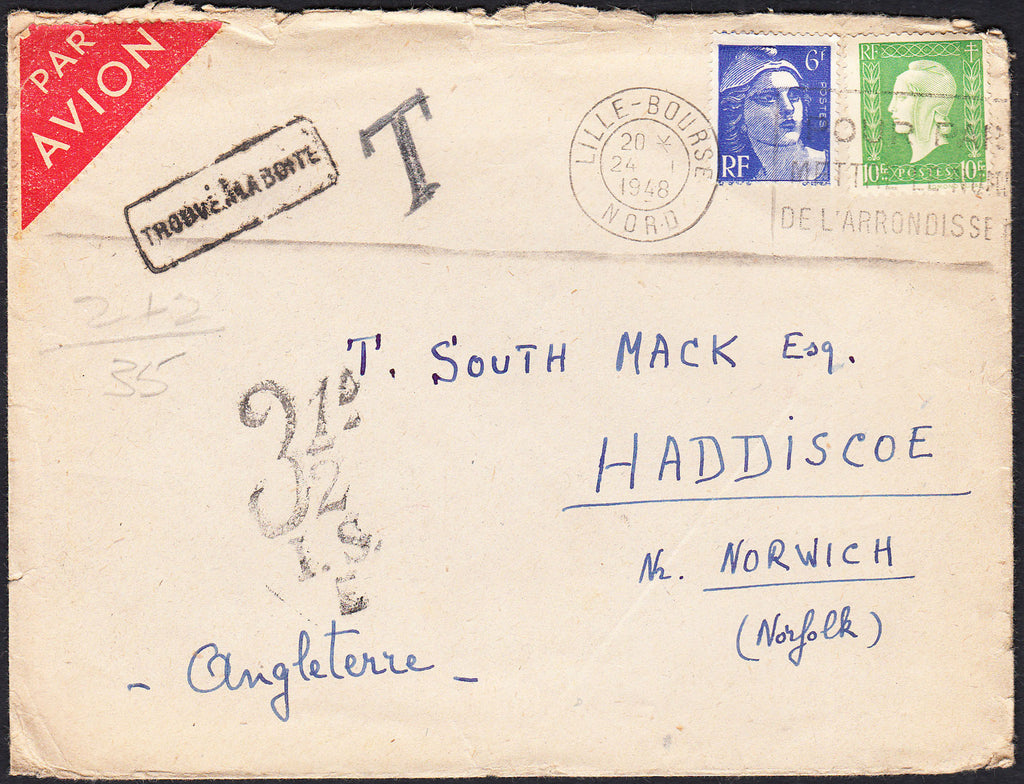 PAR
AVION
TROUVÉ À LA BOITE
T
LILLE-BOURSE
20 *
24 - 1
1948
NORD
6F
POSTES
RF
RF
10F POSTES 10F
POUR PARIS
METTRE LE NUM
DE L'ARRONDISSE
2+2
35
T. SOUTH MACK Esq.
3 1/2 D
I.S.
E
HADDISCOE
Nr. NORWICH
(Norfolk)
- Angleterre -